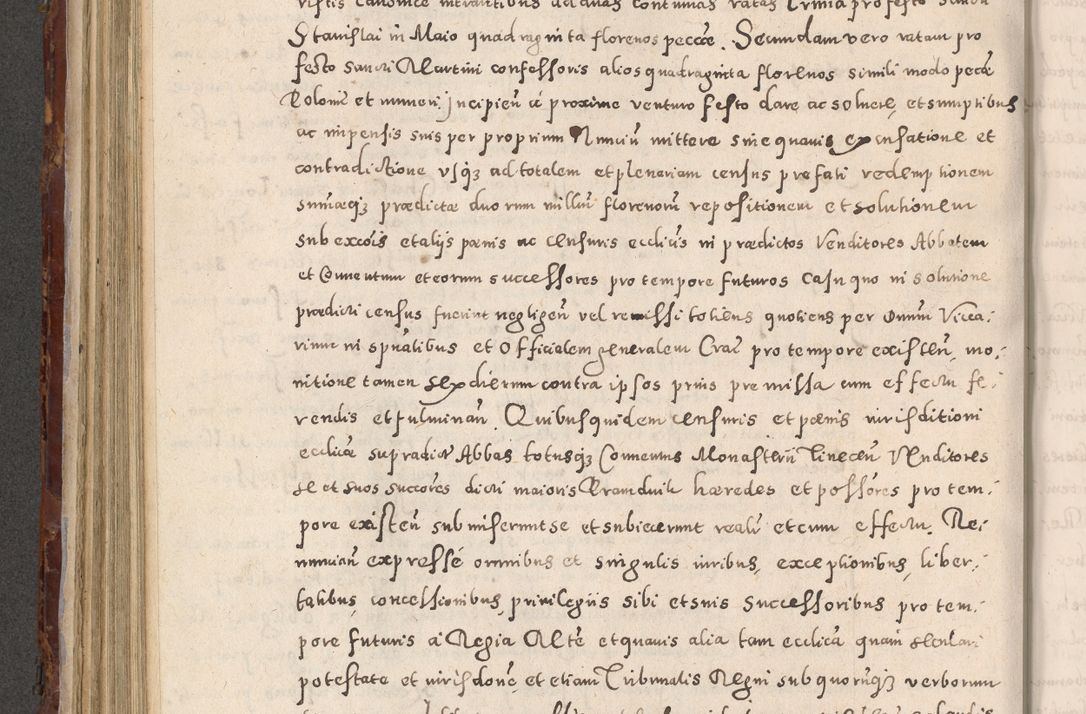 Stanislai in Maio quadraginta florenos peccae. Secundam vero ratam pro
festo Sancti Martini confessoris alios quadraginta florenos simili modo pecae
Poloniae et numeri, incipien a proxime venturo festo dare ac solvere, et sumptibus
ac impensis suis per proprium Nuncium mittere sine quavis excusatione et
contradictione usq3 ad totalem et plenariam census prefati redemptionem
sumaeq3 praedictae duorum milliu florenoru repositionem et solutionem
sub excois et alijs paenis ac censuris ecclicis in praedictos Venditores Abbatem
et Conventum et eorum successores pro tempore futuros Casu quo in solutione
praedicti census fuerint negligen vel remissi toties quotiens per Dnum Vicca-
rium in spualibus et Officialem generalem Crac pro tempore existen, mo-
nitione tamen sex dierum contra ipsos prius premissa cum effectu fe-
rendis et fulminan. Quibus quidem censuris et paenis iurisditioni
ecclicae supradict Abbas totusq3 Conventus Monasterii Tinecen Venditores
se et suos succores dicti maioris Kramduik haeredes et possores pro tem-
pore existen submiserunt se et subiecerunt reali et cum effectu. Re-
nuncian expressé omnibus et singulis iuribus, exceptionibus, liber-
tatibus, concessionibus, privilegiis sibi et suis Successoribus pro tem-
pore futuris a Regia Mte et quavis alia tam ecclica quam seculari
potestate et iurisdone, et etiam Tribunalis Regni sub quorumq3 verborum